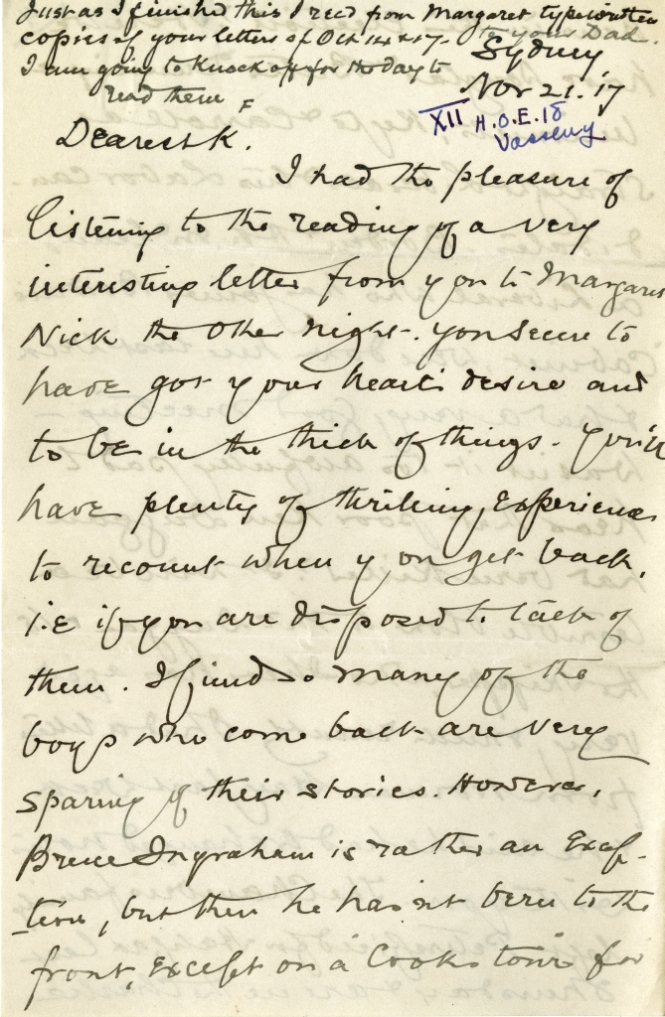 Just as I finished this I recd from Margaret typewritten
copies of your letters of Oct 14 & 17 - to your Dad.
I am going to knock off for the day to
read them F
Sydney
Nov 21. 17
XII H.O.E. 18
Vasseny
Dearest K.
I had the pleasure of
listening to the reading of a very
interesting letter from you to Margaret
Nick the other night. You seem to
have got your heart's desire and
to be in the thick of things. You'll
have plenty of thrilling experiences
to recount when you get back,
i.e if you are disposed to talk of
them. I find so many of the
boys who come back are very
sparing of their stories. However,
Bruce Ingraham is rather an excep-
tion, but then he hasnt been to the
front, except on a Cooks tour for